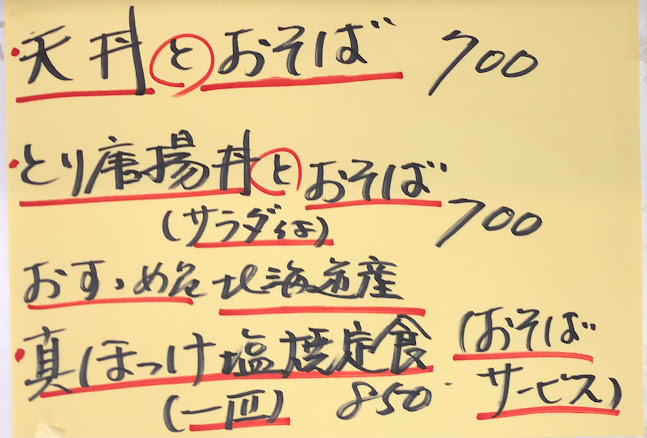 ・天丼とおそば 700
・とり唐揚丼とおそば
(サラダ付) 700
おすゝめ品 北海道産
・真ほっけ塩焼定食 (おそば
(一匹) 850 サービス)